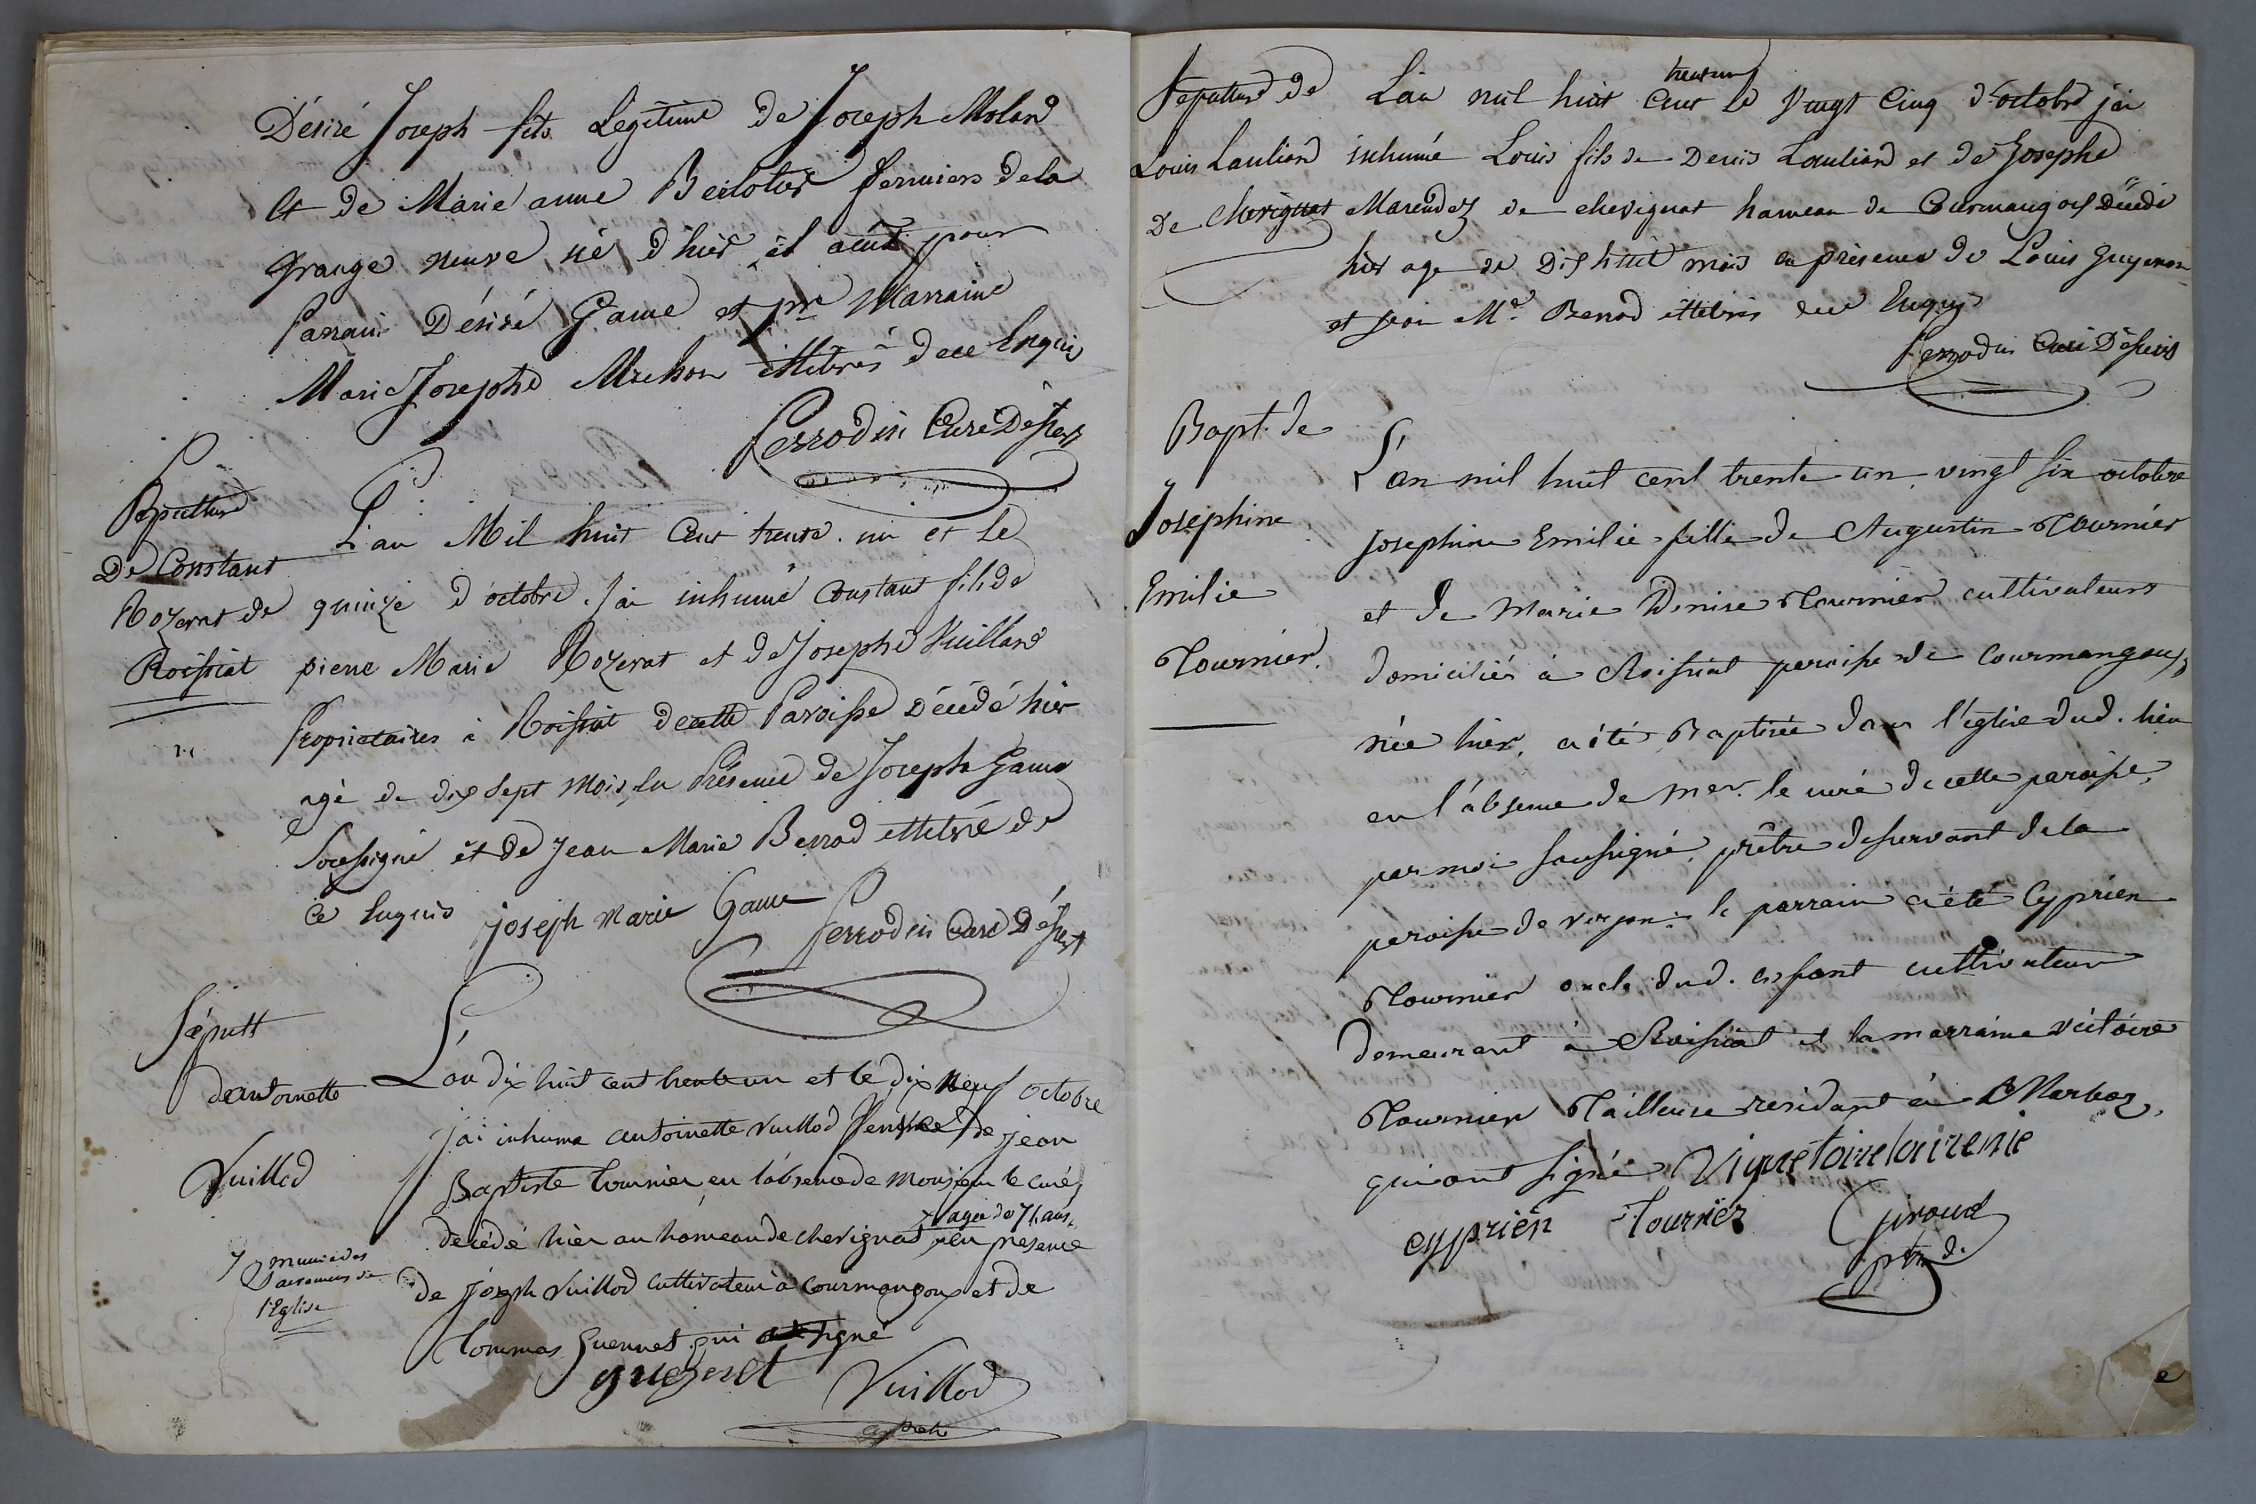 Désiré Joseph fils Légitime de Joseph Moland
et de Marie anne Beilotier fermiers dela
grange neuve né d'hier, il a eut pour
Parrain Désiré Game et pr Marraine
Marie Josephe Michon illitérés de ce Enquis
Perrodin Curé Desservt
Sépulture
De Constant
Rozerat de
Roissiat
L'an Mil huit Cent trente-un et le
quinze d'octobre. J'ai inhumé Constant fils de
pierre Marie Rozerat et de Josephe Vuillard
Propriétaires à Roissiat de cette Paroisse Décédé hier
agé de dix Sept mois, en Présence de Joseph Game
Soussigné et de Jean Marie Berrod illitéré de
ce Enquis
joseph Marie Game
Perrodin Curé Desservt
Sépult
d'antoinette
Vuillod
munie des
sacremens de
l'Eglise
L'an dix huit cent trente un et le dix neuf octobre
j'ai inhumé antoinette vuillod de jean
Baptiste tournier en l'absence de Monsieur le curé,
agée de 71 ans,
décédé hier au hameau de chevignat, en présence
de joseph Vuillod cultivateur à Courmangoux et de
tommas Guennet qui signé
guegenet
Vuillod
Sépulture de
Louis Lauliard
De Chevignat
trente un
L'an mil huit Cent le vingt Cinq d'octobre j'ai
inhumé Louis fils de Denis Lauliard et de Josephe
Marendez de chevignat hameau de Curmangoux Décédé
hier agé de Dix huit mois en présence de Louis Guyenon
et jean Mie Berrod illitérés de ce Enquis
Perrodin Curé Desservt
Bapt. de
Josephine
Emilie
Tournier.
L'an mil huit cent trente un, vingt six octobre
Josephine Emilie fille de Augustin Tournier
et de Marie Denise Tournier cultivateurs
domiciliés à Roissiat paroisse de Courmangoux,
née hier, a été Baptisée dans l'église dud. lieu
en l'absence de mr. le curé de cette paroisse,
par moi soussigné, prêtre desservant dela
paroisse de verjon. le parrain a été Cyprien
Tournier oncle dud. enfant cultivateur
demeurant à Roissiat et la marraine victoire
Tournier Tailleuse residant à Marboz,
qui ont signé. Viquetoire tairenie
cyprien Tournier
Giroud
ptre d.